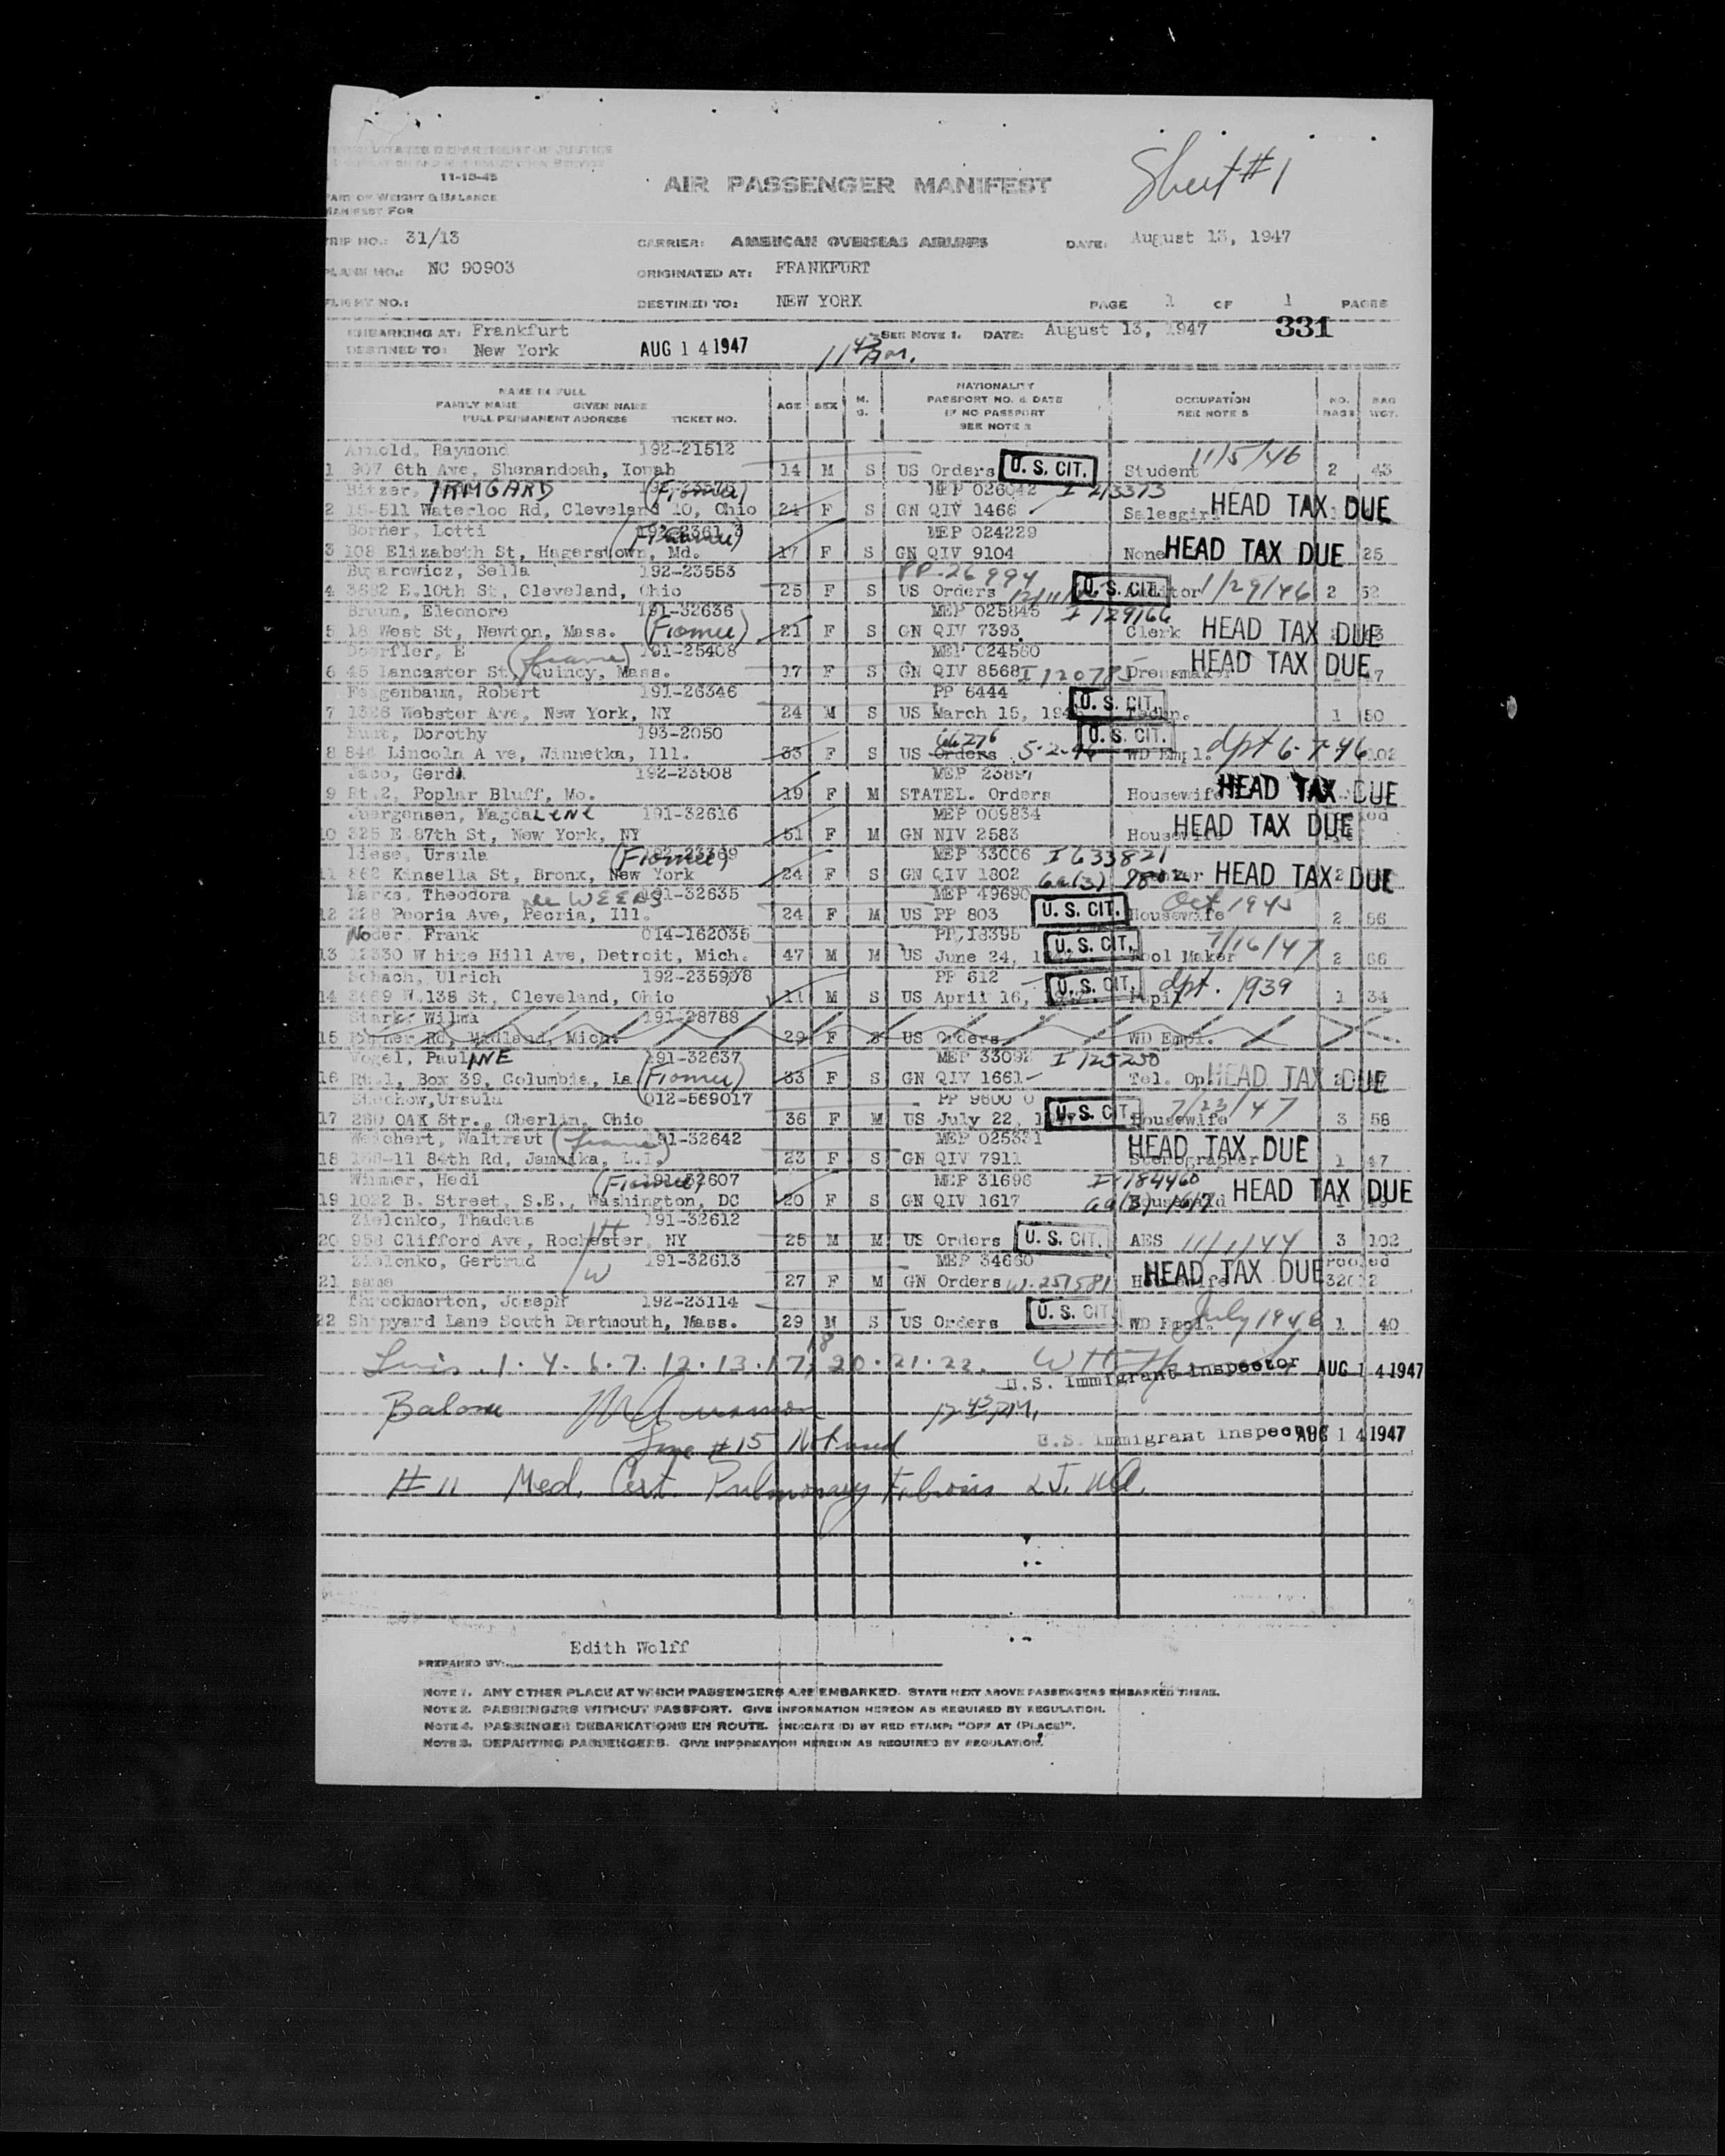 UNITED STATES DEPARTMENT OF JUSTICE
11-15-45
AIR PASSENGER MANIFEST Sheet #1
PART OF WEIGHT & BALANCE
MANIFEST FOR
TRIP NO.: 31/13 CARRIER: AMERICAN OVERSEAS AIRLINES DATE: August 13, 1947
PLANE NO.: NC 90903 ORIGINATED AT: FRANKFURT
FLIGHT NO.: DESTINED TO: NEW YORK PAGE 1 OF 1 PAGES
EMBARKING AT: Frankfurt SEE NOTE 1. DATE: August 13, 1947 331
DESTINED TO: New York AUG 14 1947
NAME IN FULL NATIONALITY
FAMILY NAME GIVEN NAME AGE SEX M. S. PASSPORT NO. & DATE OCCUPATION NO. BAG
FULL PERMANENT ADDRESS TICKET NO. IF NO PASSPORT SEE NOTE 5 BAGS WGT.
SEE NOTE 2
Arnold, Raymond 192-21512 11/5/46
1 907 6th Ave, Shenandoah, Iowah 14 M S US Orders U. S. CIT. Student 2 43
Bitzer, IRMGARD MEP 026042 I 213373
2 15-511 Waterloo Rd, Cleveland 10, Ohio 24 F S GN QIV 1466 Salesgirl HEAD TAX DUE
Borner, Lotti MEP 024229
3 108 Elizabeth St, Hagerstown, Md. 17 F S GN QIV 9104 None HEAD TAX DUE 25
Sella 192-23553 PP-26994
4 E.10th St, Cleveland, Ohio 25 F S US Orders U. S. CIT. Auditor 1/29/46 2 52
Braun, Eleonore 191-32636 MEP 025845 I 129166
5 18 West St, Newton, Mass. 21 F S GN QIV 7393 Clerk HEAD TAX DUE
Doerfler, E 191-25408 MEP 024560
6 45 Lancaster St, Quincy, Mass. 17 F S GN QIV 8568 Dressmaker HEAD TAX DUE
Feigenbaum, Robert 191-26346 PP 6444
7 1326 Webster Ave, New York, NY 24 M S US March 15, U. S. CIT. 1 50
Dorothy 193-2050 66276
8 Lincoln A ve, Winnetka, Ill. 33 F S US Orders 5-2-46 U. S. CIT. WD Empl. dpt 6-7-46 102
Jaco, Gerda 192-23508 MEP 23897
9 Rt.2, Poplar Bluff, Mo. 19 F M STATEL. Orders Housewife HEAD TAX DUE
Juergensen, MagdaLENE 191-32616 MEP 009834
10 325 E.87th St, New York, NY 51 F M GN NIV 2583 Housewife HEAD TAX DUE
Liese, Ursula MEP 33006 I 633821
11 862 Kinsella St, Bronx, New York 24 F S GN QIV 1802 6a(3) HEAD TAX DUE
Larks, Theodora nee WEEBS 191-32635 MEP 49690 Oct 1945
12 228 Peoria Ave, Peoria, Ill. 24 F M US PP 803 U. S. CIT. Housewife 2 66
Noder, Frank 014-162035 PP 18395 7/16/47
13 12330 W hite Hill Ave, Detroit, Mich. 47 M M US June 24, U. S. CIT. Tool Maker 2 66
Schach, Ulrich PP 612
14 3669 W.138 St, Cleveland, Ohio 11 M S US April 16, U. S. CIT. Pupil dpt. 1939 1 34
Stark, Wilma 191-28788
15 Rd, Midland, Mich. 29 F S US Orders WD Empl.
Vogel, PaulINE 191-32637 MEP 33092 I 125250
16 Rt.1, Box 39, Columbia, La 33 F S GN QIV 1661 Tel. Op. HEAD TAX DUE
Stechow, Ursula 012-569017 PP 9600 7/23/47
17 260 OAK Str., Oberlin, Ohio 36 F M US July 22, U. S. CIT. Housewife 3 58
Weichert, Waltraut 191-32642 MEP 025331
18 84th Rd, Jamaika, L.I. 23 F S GN QIV 7911 Stenographer HEAD TAX DUE 1 47
Wimmer, Hedi MEP 31696 I-184460
19 1022 B. Street, S.E., Washington, DC 20 F S GN QIV 1617 HEAD TAX DUE
Zielonko, Thadeus 191-32612
20 958 Clifford Ave, Rochester, NY 25 M M US Orders U. S. CIT. AES 11/1/44 3 102
Zielonko, Gertrud 191-32613 MEP 34660 Pooled
21 same 27 F M GN Orders Housewife HEAD TAX DUE
Throckmorton, Joseph 192-23114
22 Shipyard Lane South Dartmouth, Mass. 29 M S US Orders U. S. CIT. WD Empl. July 1946 1 40
Lines 1. 4. 6. 7. 12. 13. 17, 18 20. 21. 22.
U.S. Immigrant Inspector AUG 14 1947
Balance 12 45 PM.
Line #15 Not used U.S. Immigrant Inspector AUG 14 1947
#11 Med. Cert. Pulmonary Fibrosis
Edith Wolff
PREPARED BY:
NOTE 1. ANY OTHER PLACE AT WHICH PASSENGERS ARE EMBARKED. STATE NEXT ABOVE PASSENGERS EMBARKED THERE.
NOTE 2. PASSENGERS WITHOUT PASSPORT. GIVE INFORMATION HEREON AS REQUIRED BY REGULATION.
NOTE 4. PASSENGER DEBARKATIONS EN ROUTE. INDICATE (D) BY RED STAMP: "OFF AT (PLACE)".
NOTE 3. DEPARTING PASSENGERS. GIVE INFORMATION HEREON AS REQUIRED BY REGULATION.